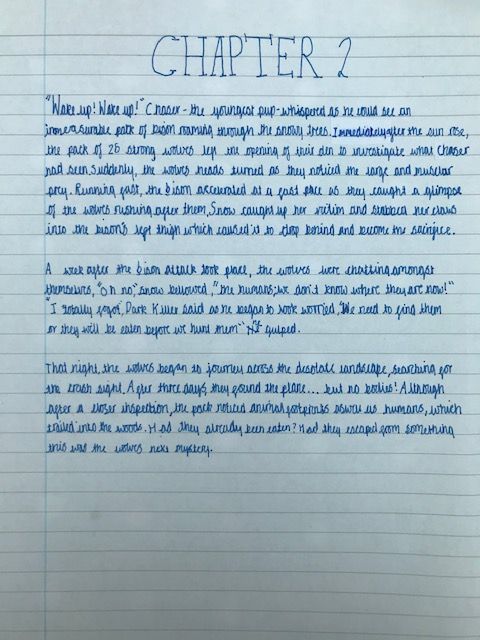 CHAPTER 2
"Wake up! Wake up!" Chaser - the youngest pup - whispered as he could see an
immeasurable pack of bison roaming through the snowy trees. Immediately after the sun rose,
the pack of 26 strong wolves left the opening of their den to investigate what Chaser
had seen. Suddenly, the wolves heads turned as they noticed the large and muscular
prey. Running fast, the bison accelerated at a fast pace as they caught a glimpse
of the wolves rushing after them, Snow caught up her victim and stabbed her claws
into the bison's left thigh which caused it to drop behind and become the sacrifice.
A week after the bison attack took place, the wolves were chatting amongst
themselves, "Oh no", snow bellowed, "the humans; we don't know where they are now!"
"I totally forgot", Dark Killer said as he began to look worried, "We need to find them
or they will be eaten before we hunt them" he gulped.
That night, the wolves began to journey across the desolate landscape, searching for
the crash sight. After three days, they found the plane... but no bodies! Although
after a closer inspection, the pack noticed animal footprints aswell as humans, which
trailed into the woods. Had they already been eaten? Had they escaped from something
this was the wolves next mystery.